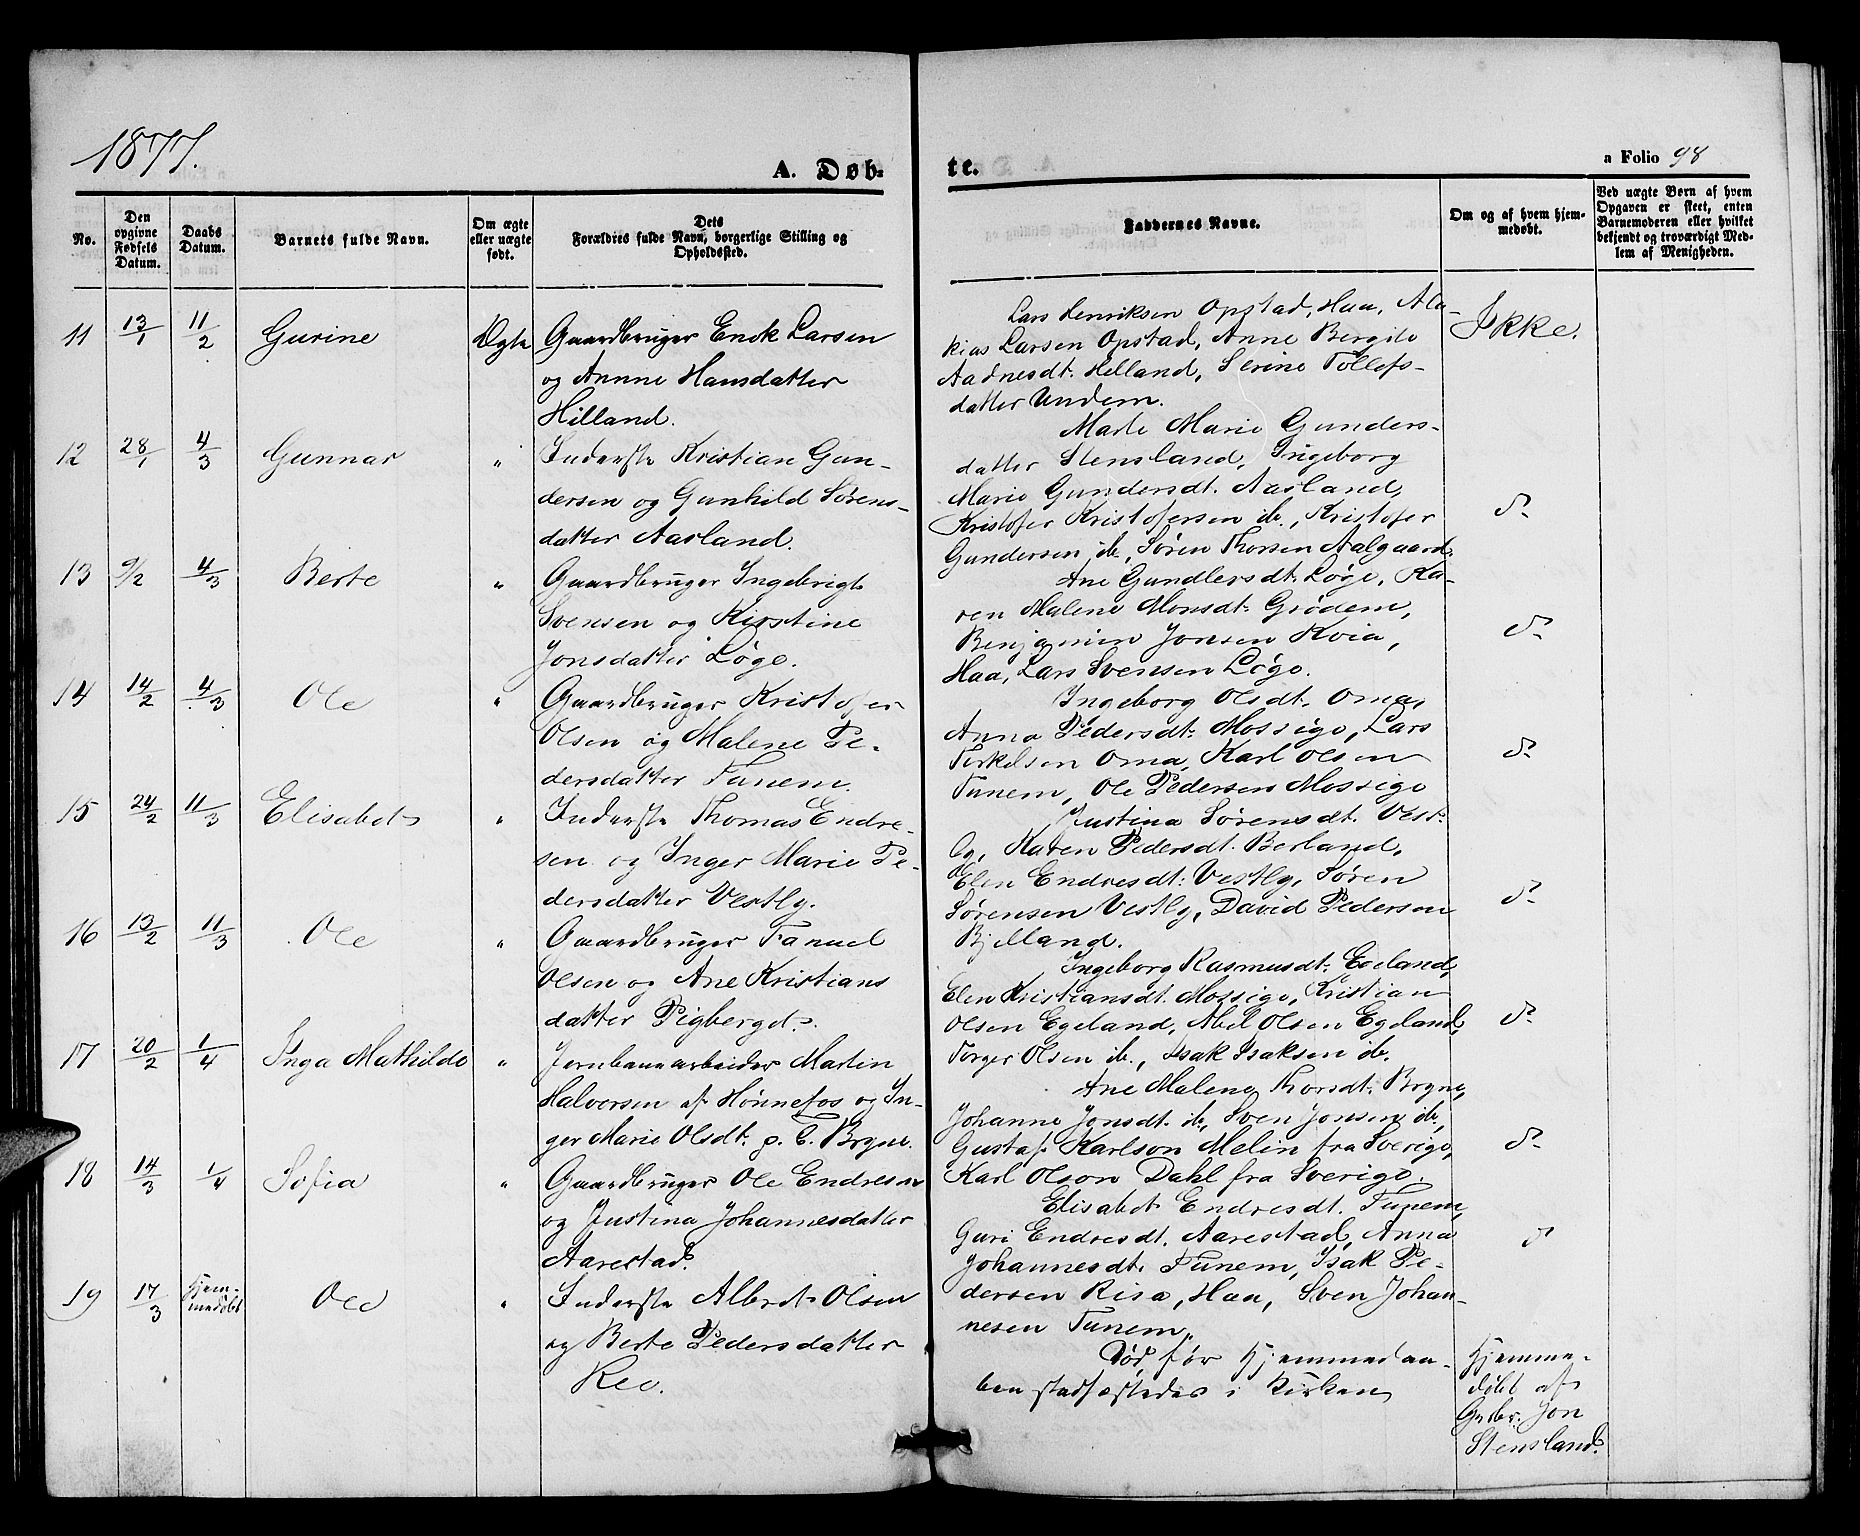 1877.
A. Døb-
te.
a Folio 98
No.
Den opgivne Fødsels Datum.
Daabs Datum.
Barnets fulde Navn.
Om ægte eller uægte født.
Dets Forældres fulde Navn, borgerlige Stilling og Opholdssted.
Faddernes Navne.
Om og af hvem hjemmedøbt.
Ved uægte Børn af hvem Opgaven er skeet, enten Barnemoderen eller hvilket bekjendt og troværdigt Medlem af Menigheden.
11 13/1 11/2 Gurine Ægte Gaardbruger Enok Larsen
og Annne Hansdatter
Hilland.
Lars Henriksen Opstad, Haa, Ma-
kias Larsen Opstad, Anne Bergite
Aadnesdt. Helland, Serine Tollefs-
datter Undem.
Ikke.
12 28/1 4/3 Gunnar " Inderste Kristian Gun-
dersen og Gunhild Sørens-
datter Aasland.
Marte Marie Gunders-
datter Stensland, Ingeborg
Marie Gundersdt. Aasland,
Kristofer Kristofersen ib., Kristofer
Gundersen ib., Søren Thorsen Aalgaard.
do
13 9/2 4/3 Berte " Gaardbruger Ingebrigt
Svensen og Kirstine
Jonsdatter Løge.
Ane Gundlersdt. Løge, Ka-
ren Malene Monsdt. Grødem,
Benjamin Jonsen Kvia,
Haa, Lars Svensen Løge.
do
14 14/2 4/3 Ole " Gaardbruger Kristofer
Olsen og Malene Pe-
dersdatter Tunem.
Ingeborg Olsdt. Oma,
Anna Pedersdt. Mossige, Lars
Torkelsen Oma, Karl Olsen
Tunem, Ole Pedersen Mossige
do
15 24/2 11/3 Elisabet " Inderste Thomas Endre-
sen og Inger Marie Pe-
dersdatter Vestly.
Justina Sørensdt. Vest-
ly, Karen Pedersdt. Berland,
Elen Endresdt. Vestly, Søren
Sørensen Vestly, David Pedersen
Bjelland.
do
16 13/2 11/3 Ole " Gaardbruger Tanuel
Olsen og Ane Kristians
datter Pigberget.
Ingeborg Rasmusdt. Egeland,
Elen Kristiansdt. Mossige, Kristian
Olsen Egeland, Abel Olsen Egeland,
Torger Olsen ib., Isak Isaksen ib.
do
17 20/2 1/4 Inga Mathilde " Jernbanearbeider Martin
Halvorsen af Hønnefos og In-
ger Marie Olsdt. p. t. Bryne.
Ane Malena Thorsdt. Bryne,
Johanne Jonsdt. ib., Sven Jonsen ib.,
Gustaf Karlson Melin fra Sverige,
Karl Olson Dahl fra Sverige.
do
18 14/3 1/4 Sofia " Gaardbruger Ole Endresen
og Justina Johannesdatter
Aarestad.
Elisabet Endresdt. Tunem,
Guri Endresdt. Aarestad, Anna
Johannesdt. Tunem, Isak Pe-
dersen Risa, Haa, Sven Johan-
nesen Tunem.
do
19 17/3 Hjem-
medøbt Ole " Inderste Albert Olsen
og Berte Pedersdatter
Ree.
Død før Hjemmedaa-
ben stadfæstedes i Kirken
Hjemme-
døbt af
Gdbr. Jon
Stensland.